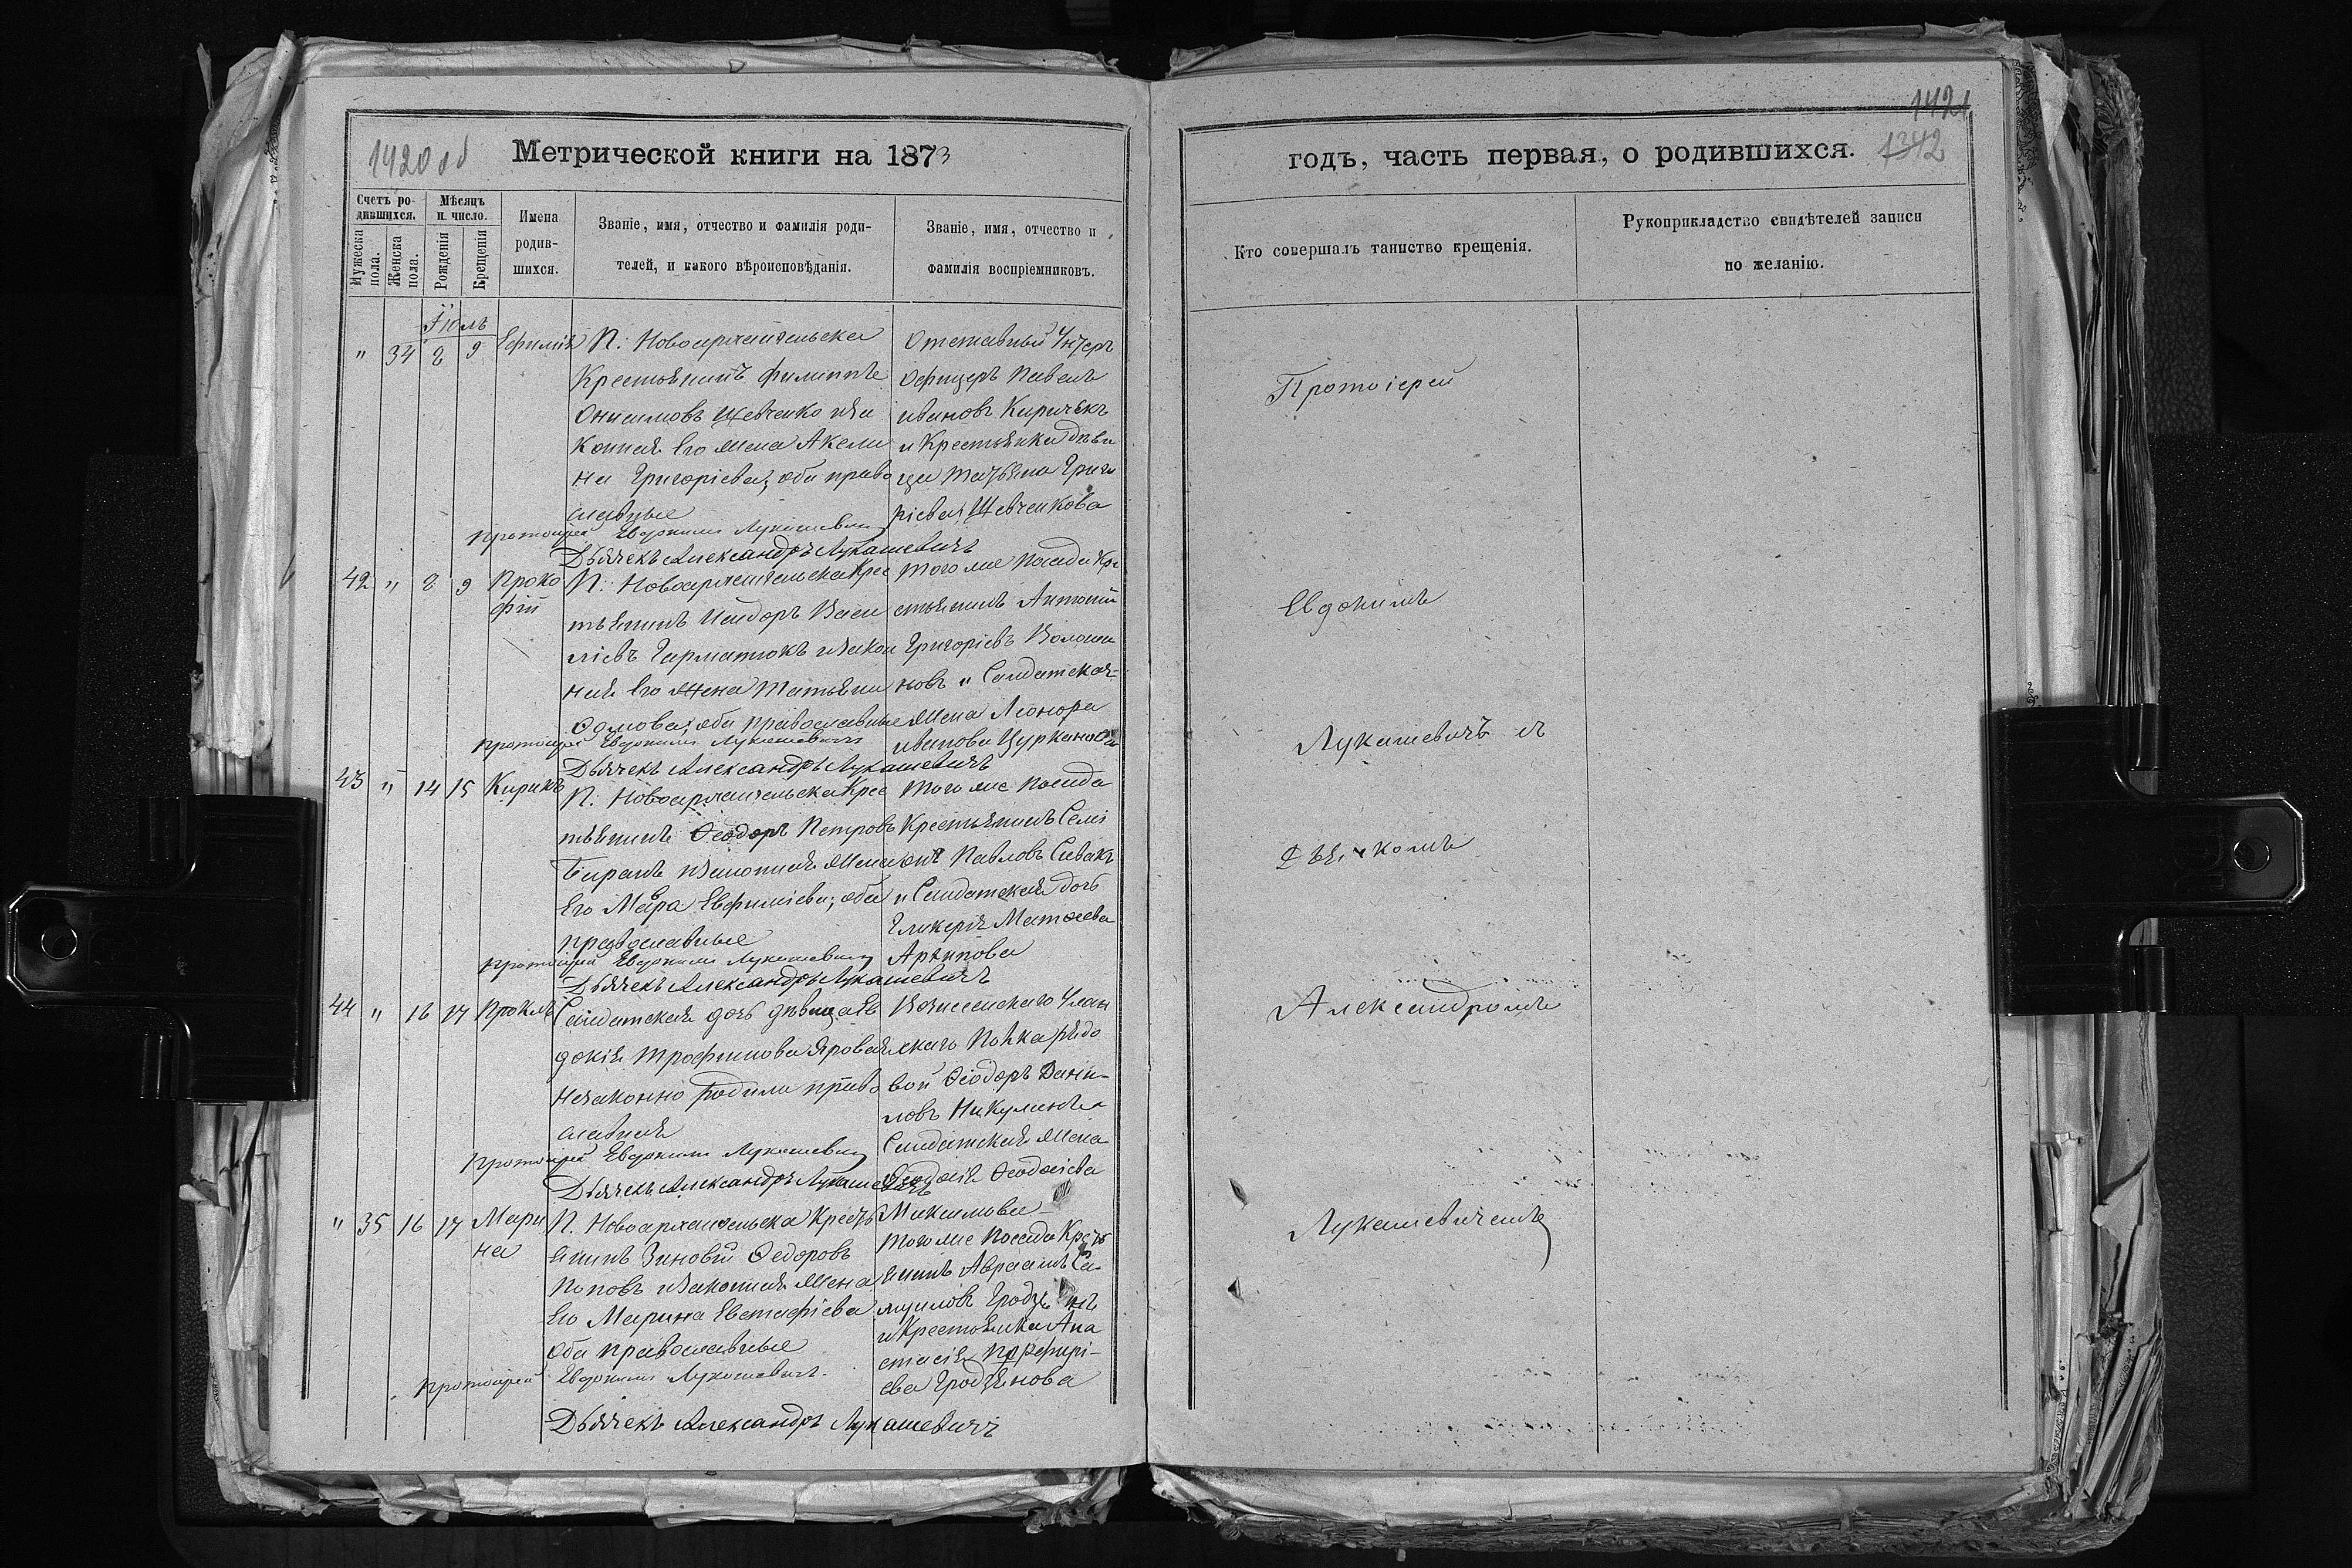 1420 об
Метрической книги на 1873
Счетъ родившихся.
Мужеска пола.
Женска пола.
Мѣсяцъ и число.
Рожденія
Крещенія
Имена родившихся.
Званіе, имя, отчество и фамилія родителей, и какого вѣроисповѣданія.
Званіе, имя, отчество и фамилія воспріемниковъ.
Іюль
" 34 8 9 Ефимія
П. Новоархангельска
Крестьянинъ Филиппъ
Онисимовъ Шевченко и за
конная его жена Акели
на Григоріева, оба право
славные
Отставный Унтеръ
Офицеръ Павелъ
Ивановъ Киричекъ
и Крестьянка дѣви
ца Татьяна Григо
ріева Шевченкова
Протоіерей Евдокимъ Лукашевичъ
Дьячекъ Александръ Лукашевичъ
42 " 8 9 Проко
фій
П. Новоархангельска Крес
тьянинъ Исидоръ Васи
ліевъ Гарматюкъ и закон
ная его жена Татьяна
оба православные
Того же посада Кре
стьянинъ Антоній
Григоріевъ Волоши
новъ и Солдатская
жена Леонора
Иванова Цуркано
Протоіерей Евдокимъ Лукашевичъ
Дьячекъ Александръ Лукашевичъ
43 " 14 15 Кирикъ
П. Новоархангельска Крес
тьянинъ Ѳеодоръ Петровъ
и законная жена
его Мавра Евфиміева, оба
православные
Того же посада
Крестьянинъ Семі
онъ Павловъ Сивакъ
и Солдатская дочь
Гликерія Матѳеева
Архипова
Протоіерей Евдокимъ Лукашевичъ
Дьячекъ Александръ Лукашевичъ
44 " 16 17 Проклъ
Солдатская дочь дѣвица Ев
докія Трофимова Яровая
незаконно родила право
славная
Вознесенскаго Улан
скаго Полка рядо
вой Ѳеодоръ Дани-
ловъ Никулинъ и
Солдатская жена
Ѳеодосія Ѳеодосіева
Максимова
Протоіерей Евдокимъ Лукашевичъ
Дьячекъ Александръ Лукашевичъ
" 35 16 17 Мари
на
П. Новоархангельска Кресть
янинъ Зиновій Ѳедоровъ
Поповъ и законная жена
его Марина Евстафіева
оба православные
Того же посада Кресть
янинъ Авраамъ Са
муиловъ
и Крестьянка Ана
стасія Порфирі-
ева
Протоіерей Евдокимъ Лукашевичъ
Дьячекъ Александръ Лукашевичъ
1421
1342
годъ, часть первая, о родившихся.
Кто совершалъ таинство крещенія.
Рукоприкладство свидѣтелей записи по желанію.
Протоіерей
Евдокимъ
Лукашевичъ съ
Дьячкомъ
Александромъ
Лукашевичемъ